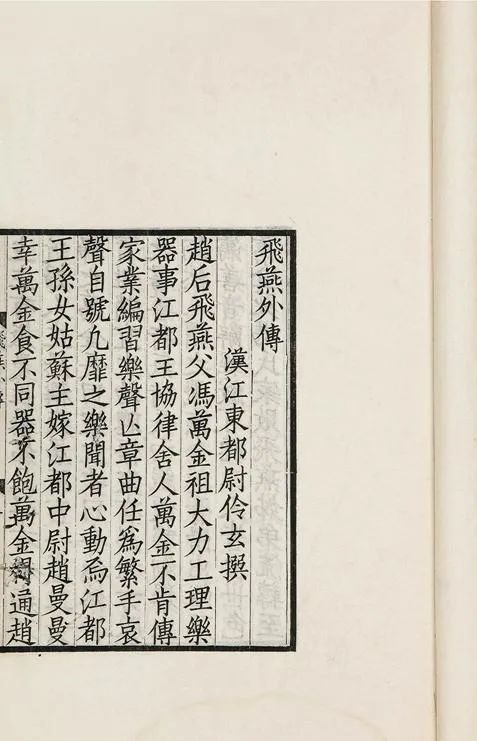 飛燕外傳
漢江東都尉伶玄撰
趙后飛燕父馮萬金祖大力工理樂
器事江都王協律舍人萬金不肯傳
家業編習樂聲亾章曲任爲繁手哀
聲自號凡靡之樂聞者心動焉江都
王孫女姑蘇主嫁江都中尉趙曼曼
幸萬金食不同器不飽萬金得通趙